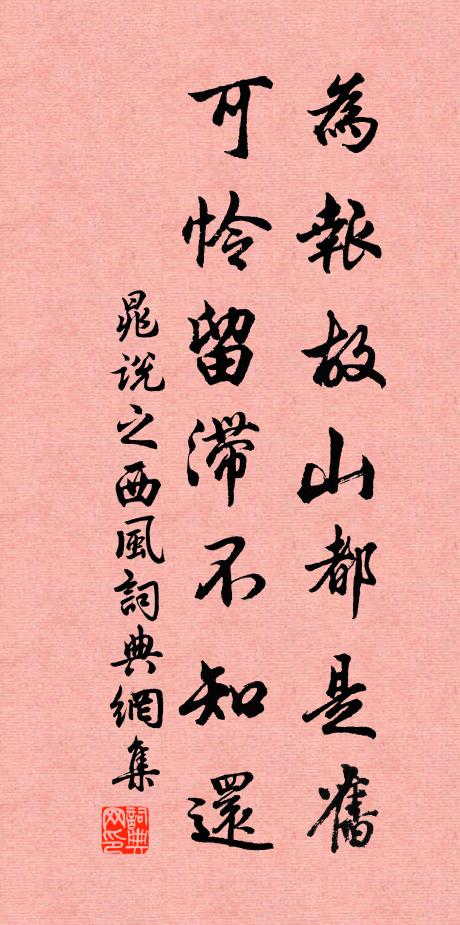 為報故山都是舊
可憐留滯不知還
晁說之西風詞典網集
詞典
网印